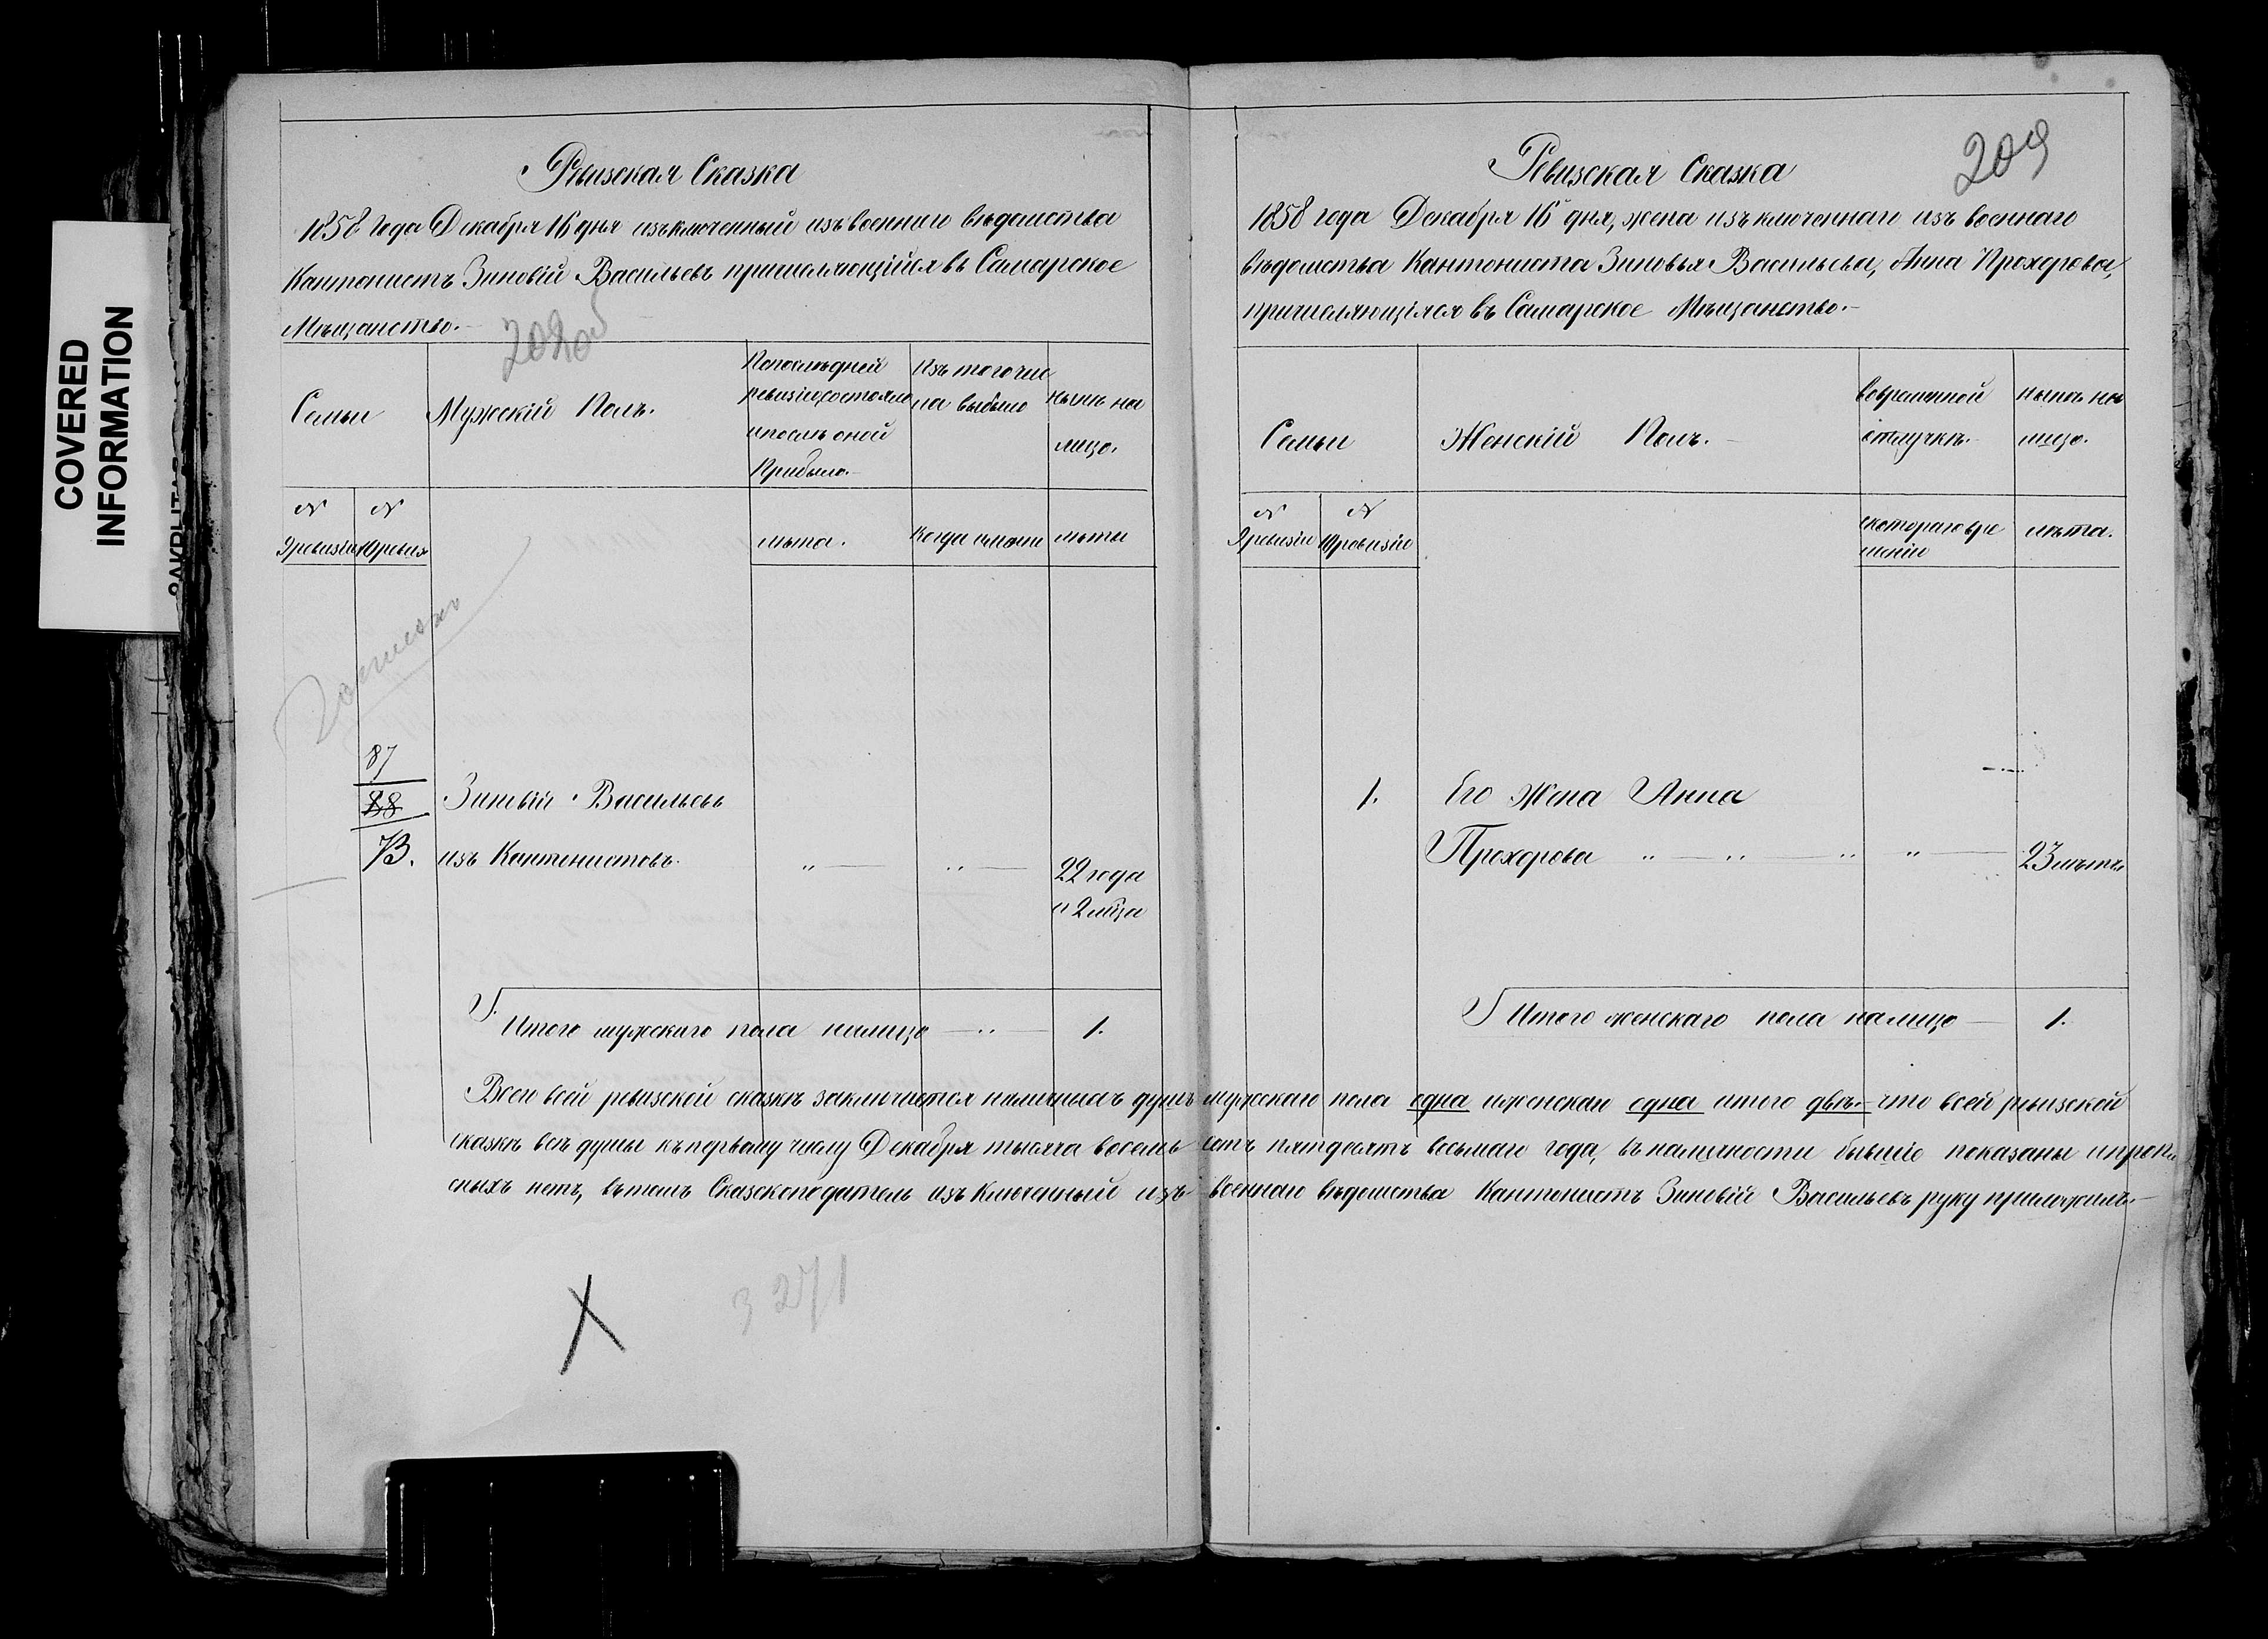 COVERED
INFORMATION
Ревизская Сказка
1858 Года Декабря 16 дня изъключенный изъ военнаго вѣдомства
Кантонистъ Зиновій Васильевъ причисляющійся въ Самарское
Мѣщанство.-
208об
Семьи
Мужскій Полъ.
Попослѣдней
ревизіи состояло
ипослѣ оной
Прибыло.-
Изъ того чис
ла выбыло
нынѣ на
лицо.
N
N
9 ревизіи
10 ревиз
лѣта.
Когда имянно
лѣты
87
88
73.
Зиновій Васильевъ
изъ Кантонистовъ.
22 года
и 2 мѣца
Итого мужскаго пола налицо
1.
Ревизская Сказка
209
1858 года Декабря 16 дня, жена изъключеннаго изъ военнаго
вѣдомства Кантониста Зиновья Васильева, Анна Прохорова,
причисляющіяся въ Самарское Мѣщанство.-
Семьи
Женскій Полъ.-
вовременной
отлучкѣ.-
нынѣ на
лицо.
N
N
9 ревизіи
10 ревизіи
скотораго вре
мѣни
лѣта.
1.
Его жена Анна
Прохорова
23 лѣтъ
Итого женскаго пола налицо
1.
Всего всей ревизской сказкѣ заключается наличныхъ душъ мужскаго пола одна иженскаго одна итого двѣ.- что всей ревизской
сказкѣ всѣ душы къпервому числу Декабря тысяча восемь сотъ пятдесятъ восьмаго года, въ наличности бывшіе показаны ипропи
сныхъ нетъ, вътомъ Сказскоподатель изъключенный изъ военнаго вѣдомства Кантонистъ Зиновій Васильевъ руку приложилъ.-
X
3271